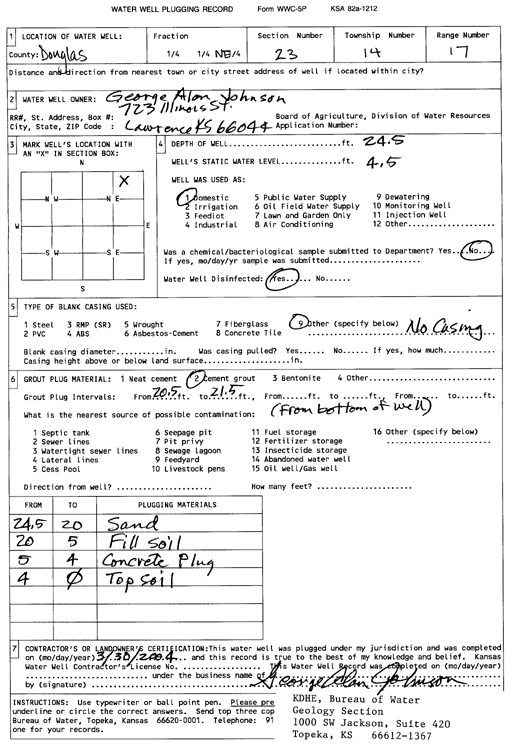 WATER WELL PLUGGING RECORD Form WWC-5P KSA 82a-1212
1 LOCATION OF WATER WELL: Fraction Section Number Township Number Range Number
County: Douglas 1/4 1/4 NE/4 23 14 17
Distance and direction from nearest town or city street address of well if located within city?
2 WATER WELL OWNER: George Alan Johnson
723 Illinois St.
RR#, St. Address, Box #: Board of Agriculture, Division of Water Resources
City, State, ZIP Code : Lawrence KS 66044 Application Number:
3 MARK WELL'S LOCATION WITH AN "X" IN SECTION BOX:
N W N E
X
W E
S W S E
S
4 DEPTH OF WELL....................ft. 24.5
WELL'S STATIC WATER LEVEL.........ft. 4.5
WELL WAS USED AS:
1 Domestic 5 Public Water Supply 9 Dewatering
2 Irrigation 6 Oil Field Water Supply 10 Monitoring Well
3 Feedlot 7 Lawn and Garden Only 11 Injection Well
4 Industrial 8 Air Conditioning 12 Other...........
Was a chemical/bacteriological sample submitted to Department? Yes...No...
If yes, mo/day/yr sample was submitted.....................
Water Well Disinfected: Yes..... No......
5 TYPE OF BLANK CASING USED:
1 Steel 3 RMP (SR) 5 Wrought 7 Fiberglass 9 Other (specify below) No Casing
2 PVC 4 ABS 6 Asbestos-Cement 8 Concrete Tile
Blank casing diameter...........in. Was casing pulled? Yes...... No..... If yes, how much..........
Casing height above or below land surface..................in.
6 GROUT PLUG MATERIAL: 1 Neat cement 2 Cement grout 3 Bentonite 4 Other...................
Grout Plug Intervals: From 20.5 ft. to 21.5 ft. From......ft. to ......ft., From...... to......ft.
(From bottom of well)
What is the nearest source of possible contamination:
1 Septic tank 6 Seepage pit 11 Fuel storage 16 Other (specify below)
2 Sewer lines 7 Pit privy 12 Fertilizer storage
3 Watertight sewer lines 8 Sewage lagoon 13 Insecticide storage
4 Lateral lines 9 Feedyard 14 Abandoned water well
5 Cess Pool 10 Livestock pens 15 Oil well/Gas well
Direction from well? ..................... How many feet? ..................
FROM TO PLUGGING MATERIALS
24.5 20 Sand
20 5 Fill Soil
5 4 Concrete Plug
4 0 Top Soil
7 CONTRACTOR'S OR LANDOWNER'S CERTIFICATION: This water well was plugged under my jurisdiction and was completed
on (mo/day/year) 3/30/2004... and this record is true to the best of my knowledge and belief. Kansas
Water Well Contractor's License No. ................ This Water Well Record was completed on (mo/day/year)
................ under the business name of
by (signature) George Alan Johnson
INSTRUCTIONS: Use typewriter or ball point pen. Please pre
underline or circle the correct answers. Send top three cop
Bureau of Water, Topeka, Kansas 66620-0001. Telephone: 91
one for your records.
KDHE, Bureau of Water
Geology Section
1000 SW Jackson, Suite 420
Topeka, KS 66612-1367